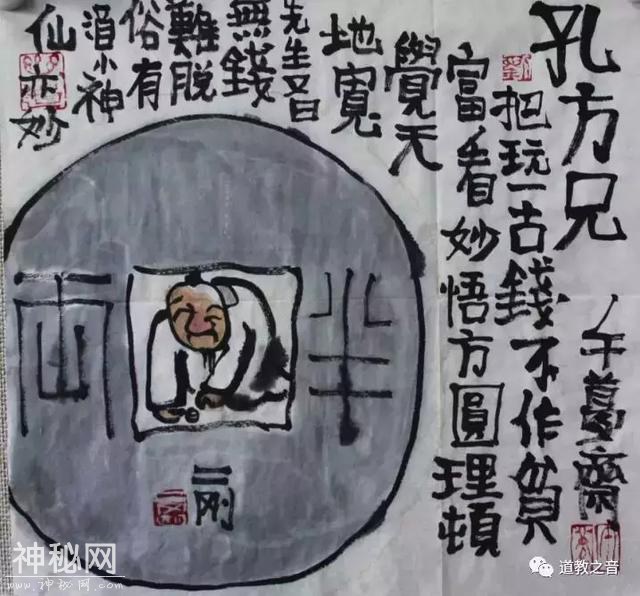 孔方兄
午夢齋
把玩一古錢不作貧
富看妙悟方圓理頓
覺天
地寬
先生
無錢
難脫
俗有
小神
仙亦妙
半兩
二刚
神秘网
www.神秘网.com
道教之音